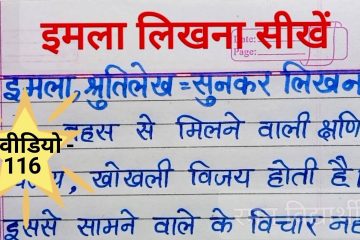 इमला लिखना सीखें
Date:
Page:
इमला, श्रुतिलेख = सुनकर लिखन
वीडियो -
116
हस से मिलने वाली क्षणि
, खोखली विजय होती है।
इससे सामने वाले के विचार नह